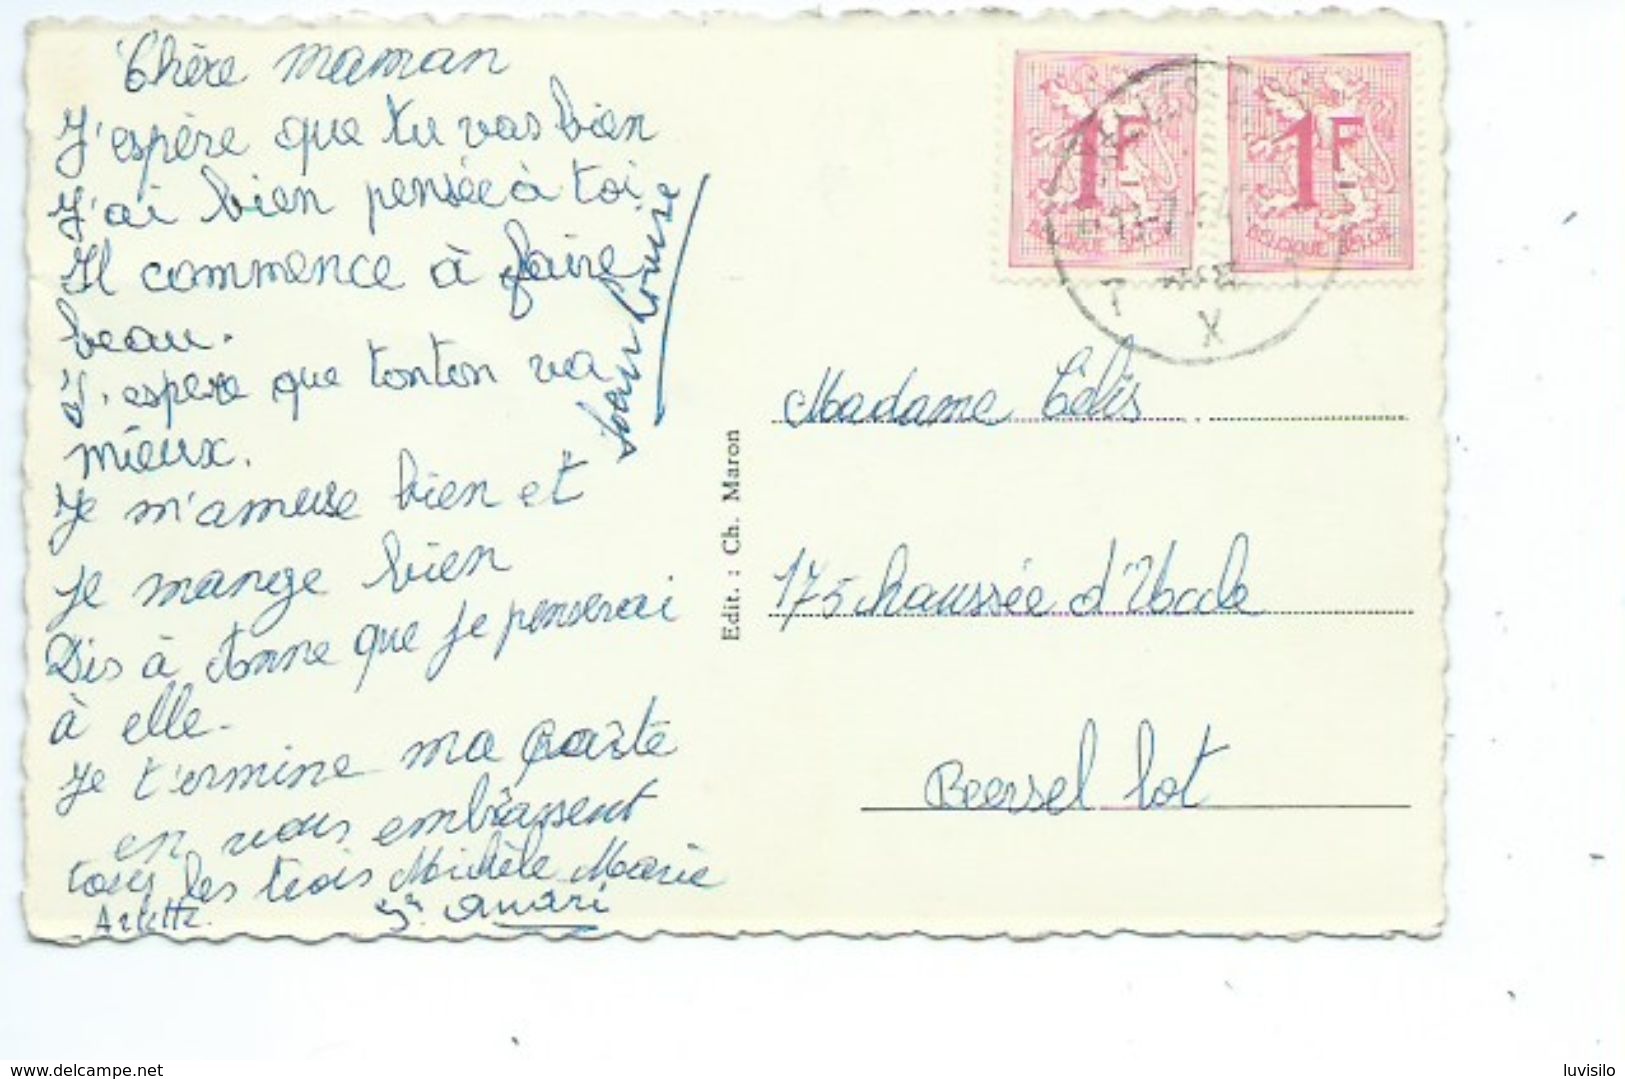 Chère maman
J'espère que tu vas bien
J'ai bien pensée à toi
Il commence à faire
beau.
J'espère que tonton va
mieux.
Je m'amuse bien et
je mange bien
Dis à Anne que je penserai
à elle.
Je t'ermine ma carte
en vous embrassent
tous les trois Michèle Marie
Arlette.
Jean Louise
Edit. : Ch. Maron
1F
BELGIQUE BELGIE
1F
BELGIQUE BELGIE
X
Madame Celis
175 chaussée d'Uccle
Beersel Lot
www.delcampe.net
luvisilo